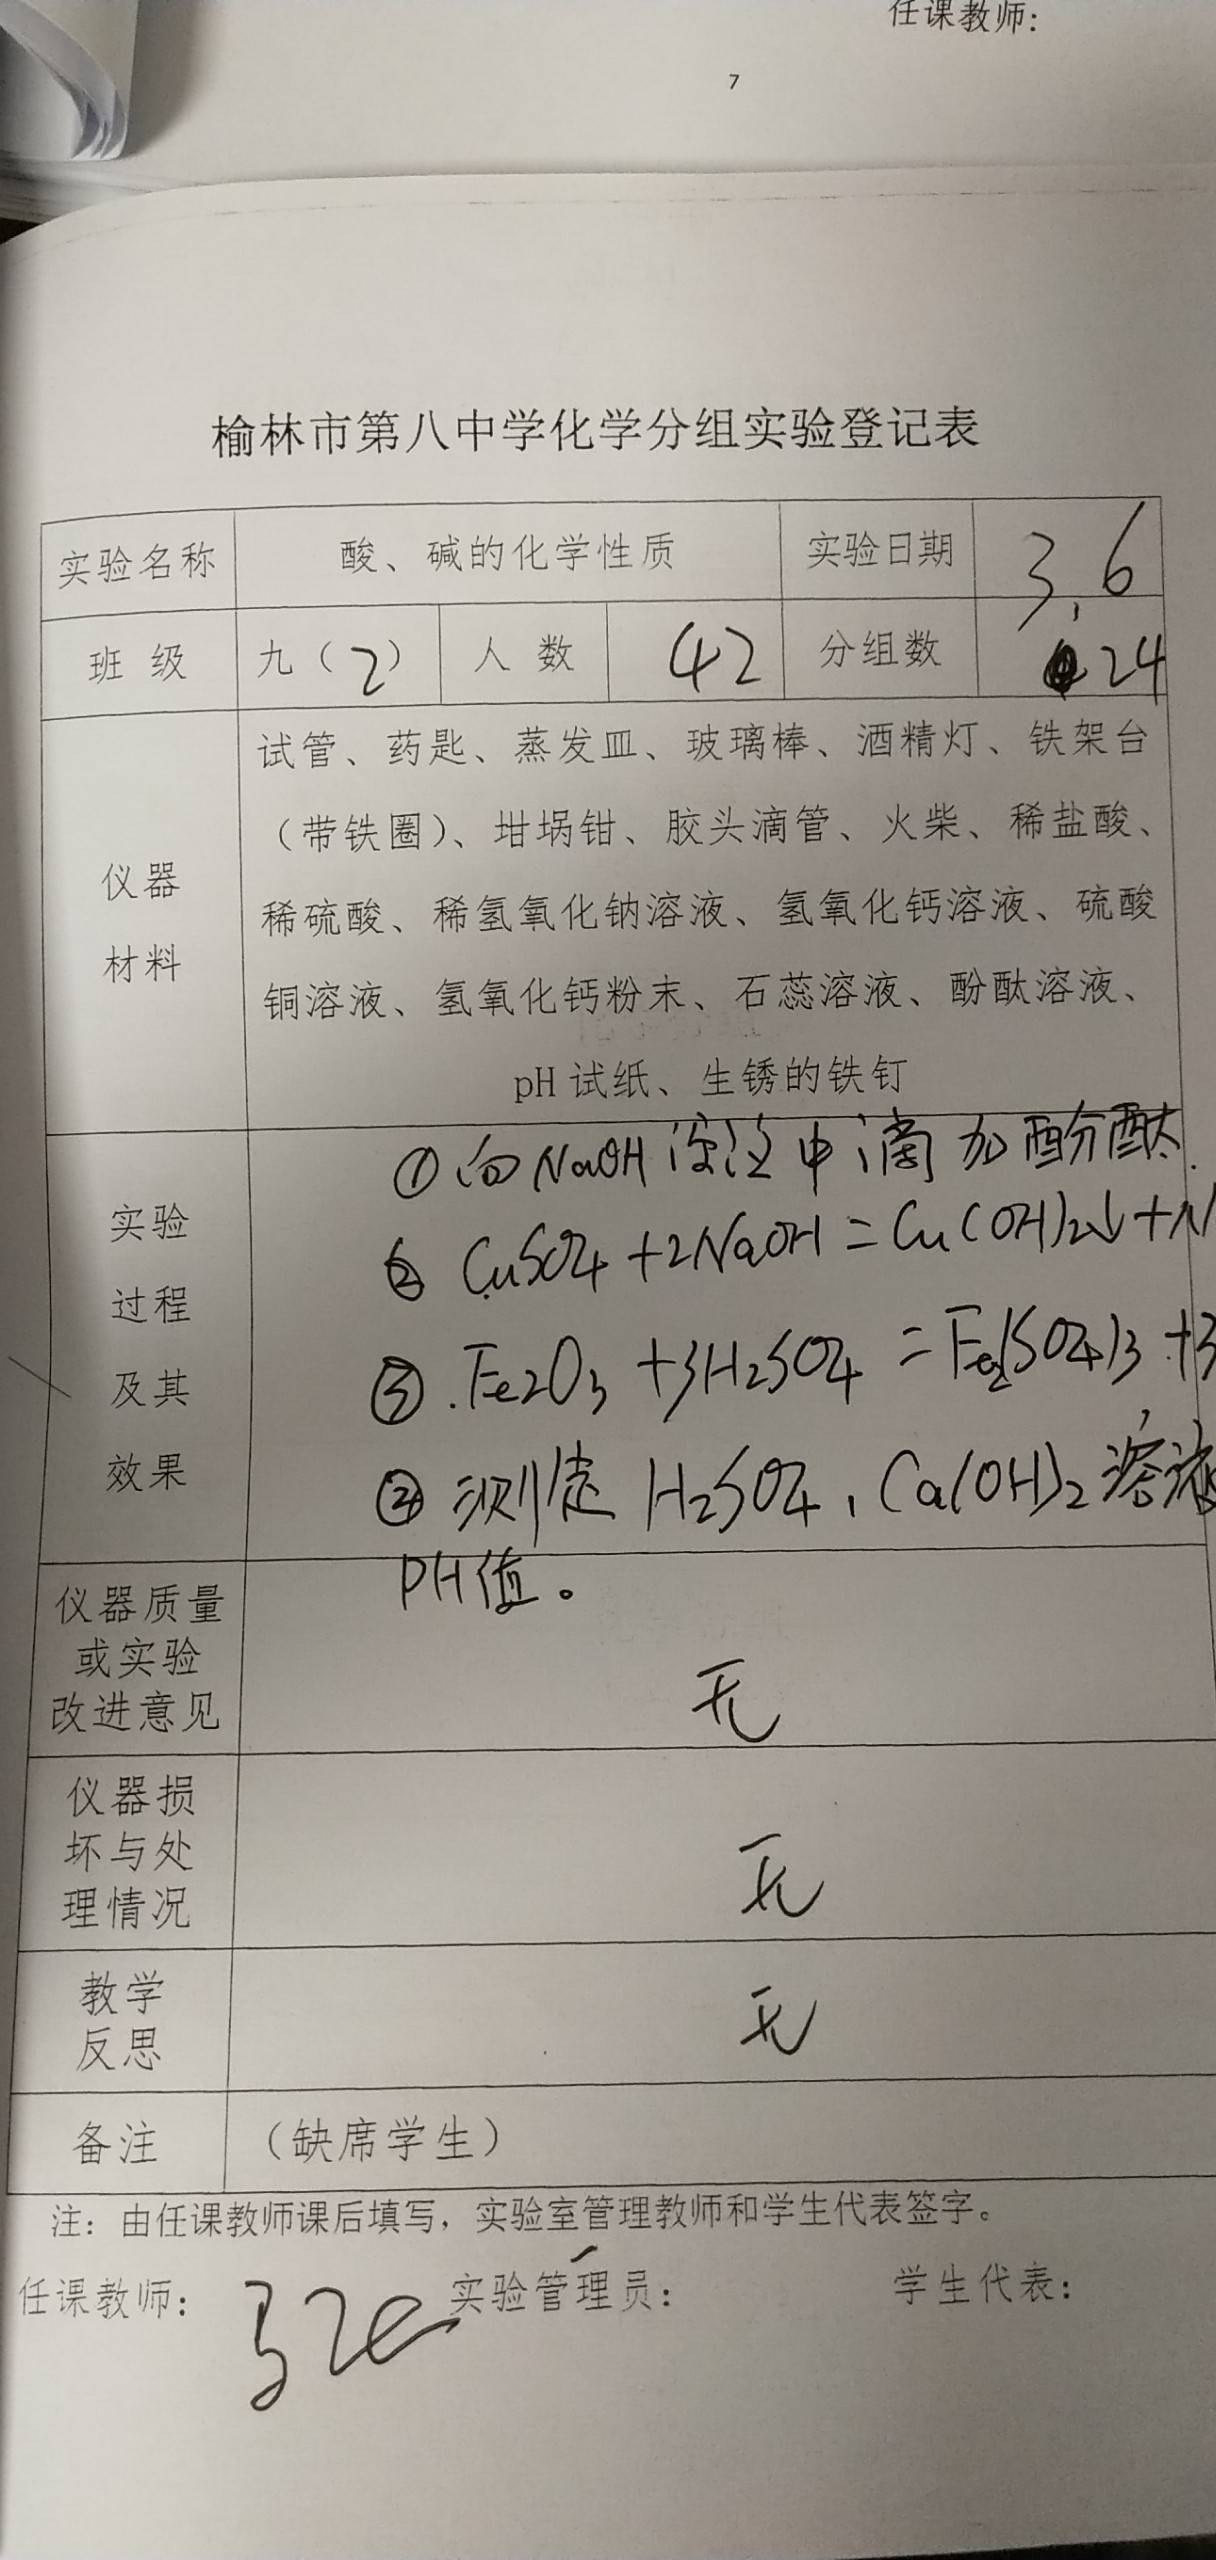 任课教师:
7
榆林市第八中学化学分组实验登记表
实验名称 酸、碱的化学性质 实验日期 3.6
班 级 九（2） 人 数 42 分组数 24
仪器
材料
试管、药匙、蒸发皿、玻璃棒、酒精灯、铁架台
（带铁圈）、坩埚钳、胶头滴管、火柴、稀盐酸、
稀硫酸、稀氢氧化钠溶液、氢氧化钙溶液、硫酸
铜溶液、氢氧化钙粉末、石蕊溶液、酚酞溶液、
pH 试纸、生锈的铁钉
实验
过程
及其
效果
①向NaOH溶液中滴加酚酞.
② CuSO4+2NaOH=Cu(OH)2↓+N
③.Fe2O3+3H2SO4=Fe2(SO4)3+3
④测定H2SO4、Ca(OH)2溶液
PH值。
仪器质量
或实验
改进意见
无
仪器损
坏与处
理情况
无
教学
反思
无
备注 （缺席学生）
注：由任课教师课后填写，实验室管理教师和学生代表签字。
任课教师: 实验管理员: 学生代表: